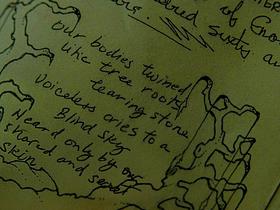 of Gro
ears. dred sixty au
Our bodies twined
like tree roots
tearing stone
Voiceless cries to a
Blind sky
Heard only by our
shared and secret
skin